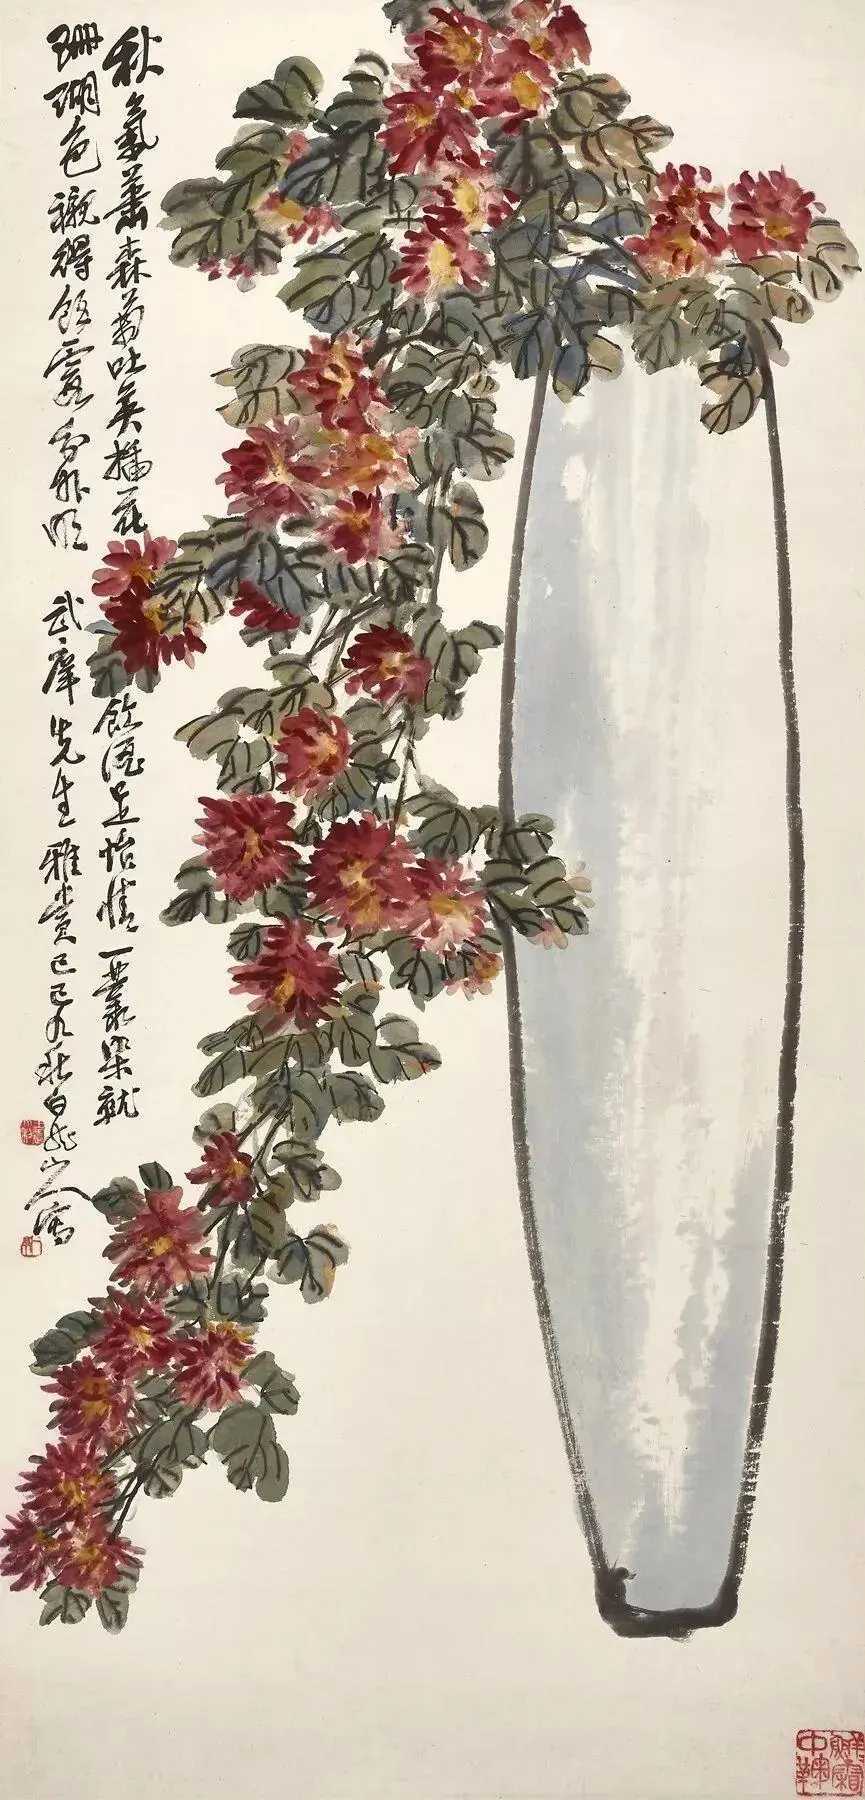 秋氣蕭森菊吐英插花飲酒足怡情一叢染就
珊瑚色襯得餘霞分外明 武先生雅賞己巳九秋白龍山人寫